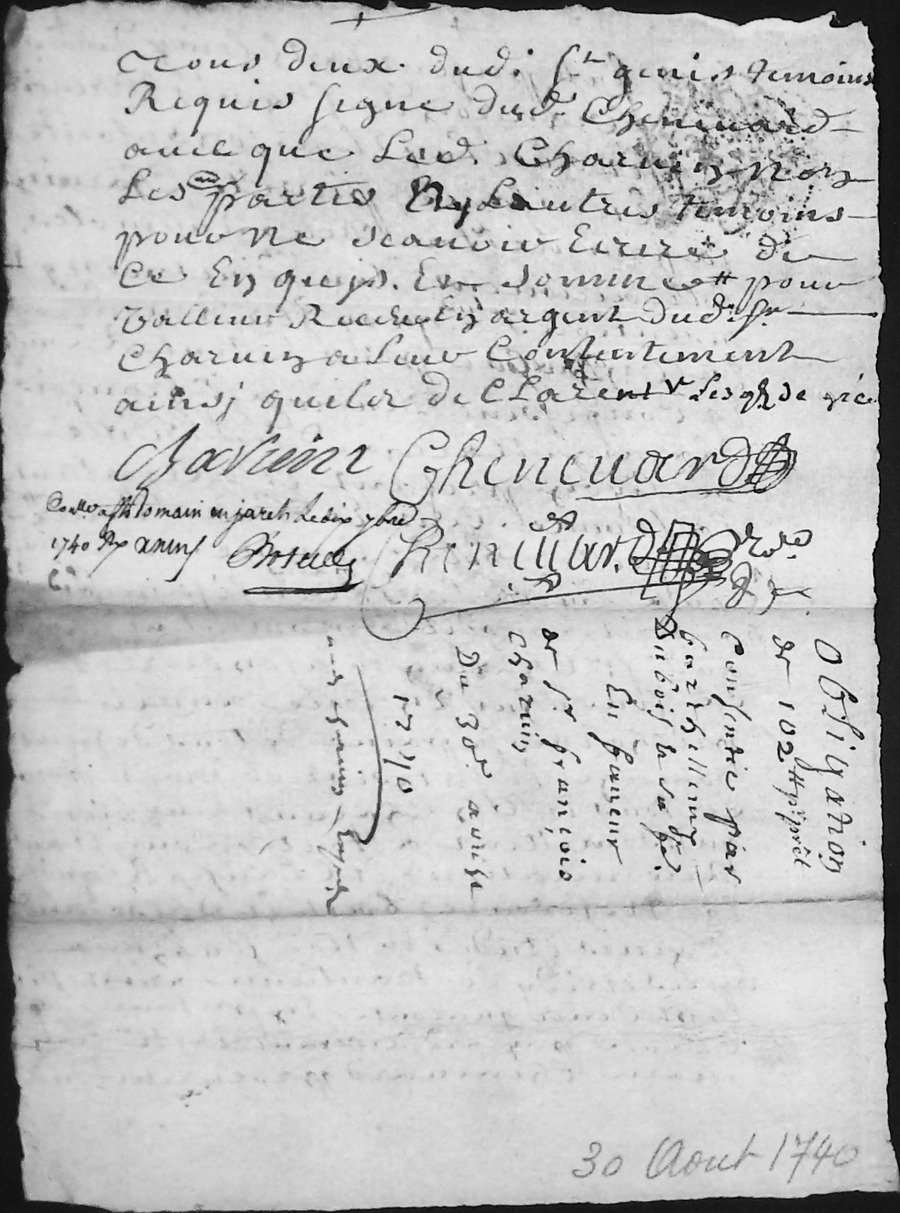 tous deux dud. St genis temoins
Requis signe dud. Chenevard
avec que led. Charvin non
Les partie Ny Lautres temoins
pour ne scavoir Ecrire de
Ce Enquis. Et Somme tt pour
valleur Receu En argent dud. Sr
Charvin a leur Contentement
ainsi quils declarent
Charvin Chenevard
Con a St Romain en jarets le dix 7bre
1740 Rx
Chenevard
Obligation
de 102 tt p. prêt
Consentie par
barthellemy
Dubois et sa fe.
En faveur
de Sr françois
Charvin
Du 30e aoust
1740
30 Aout 1740